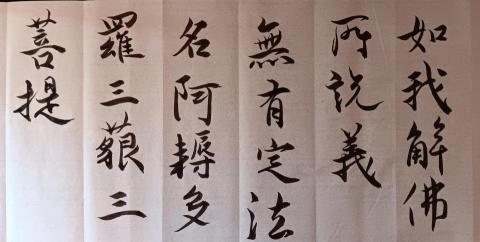 如我解佛
所說義
無有定法
名阿耨多
羅三藐三
菩提